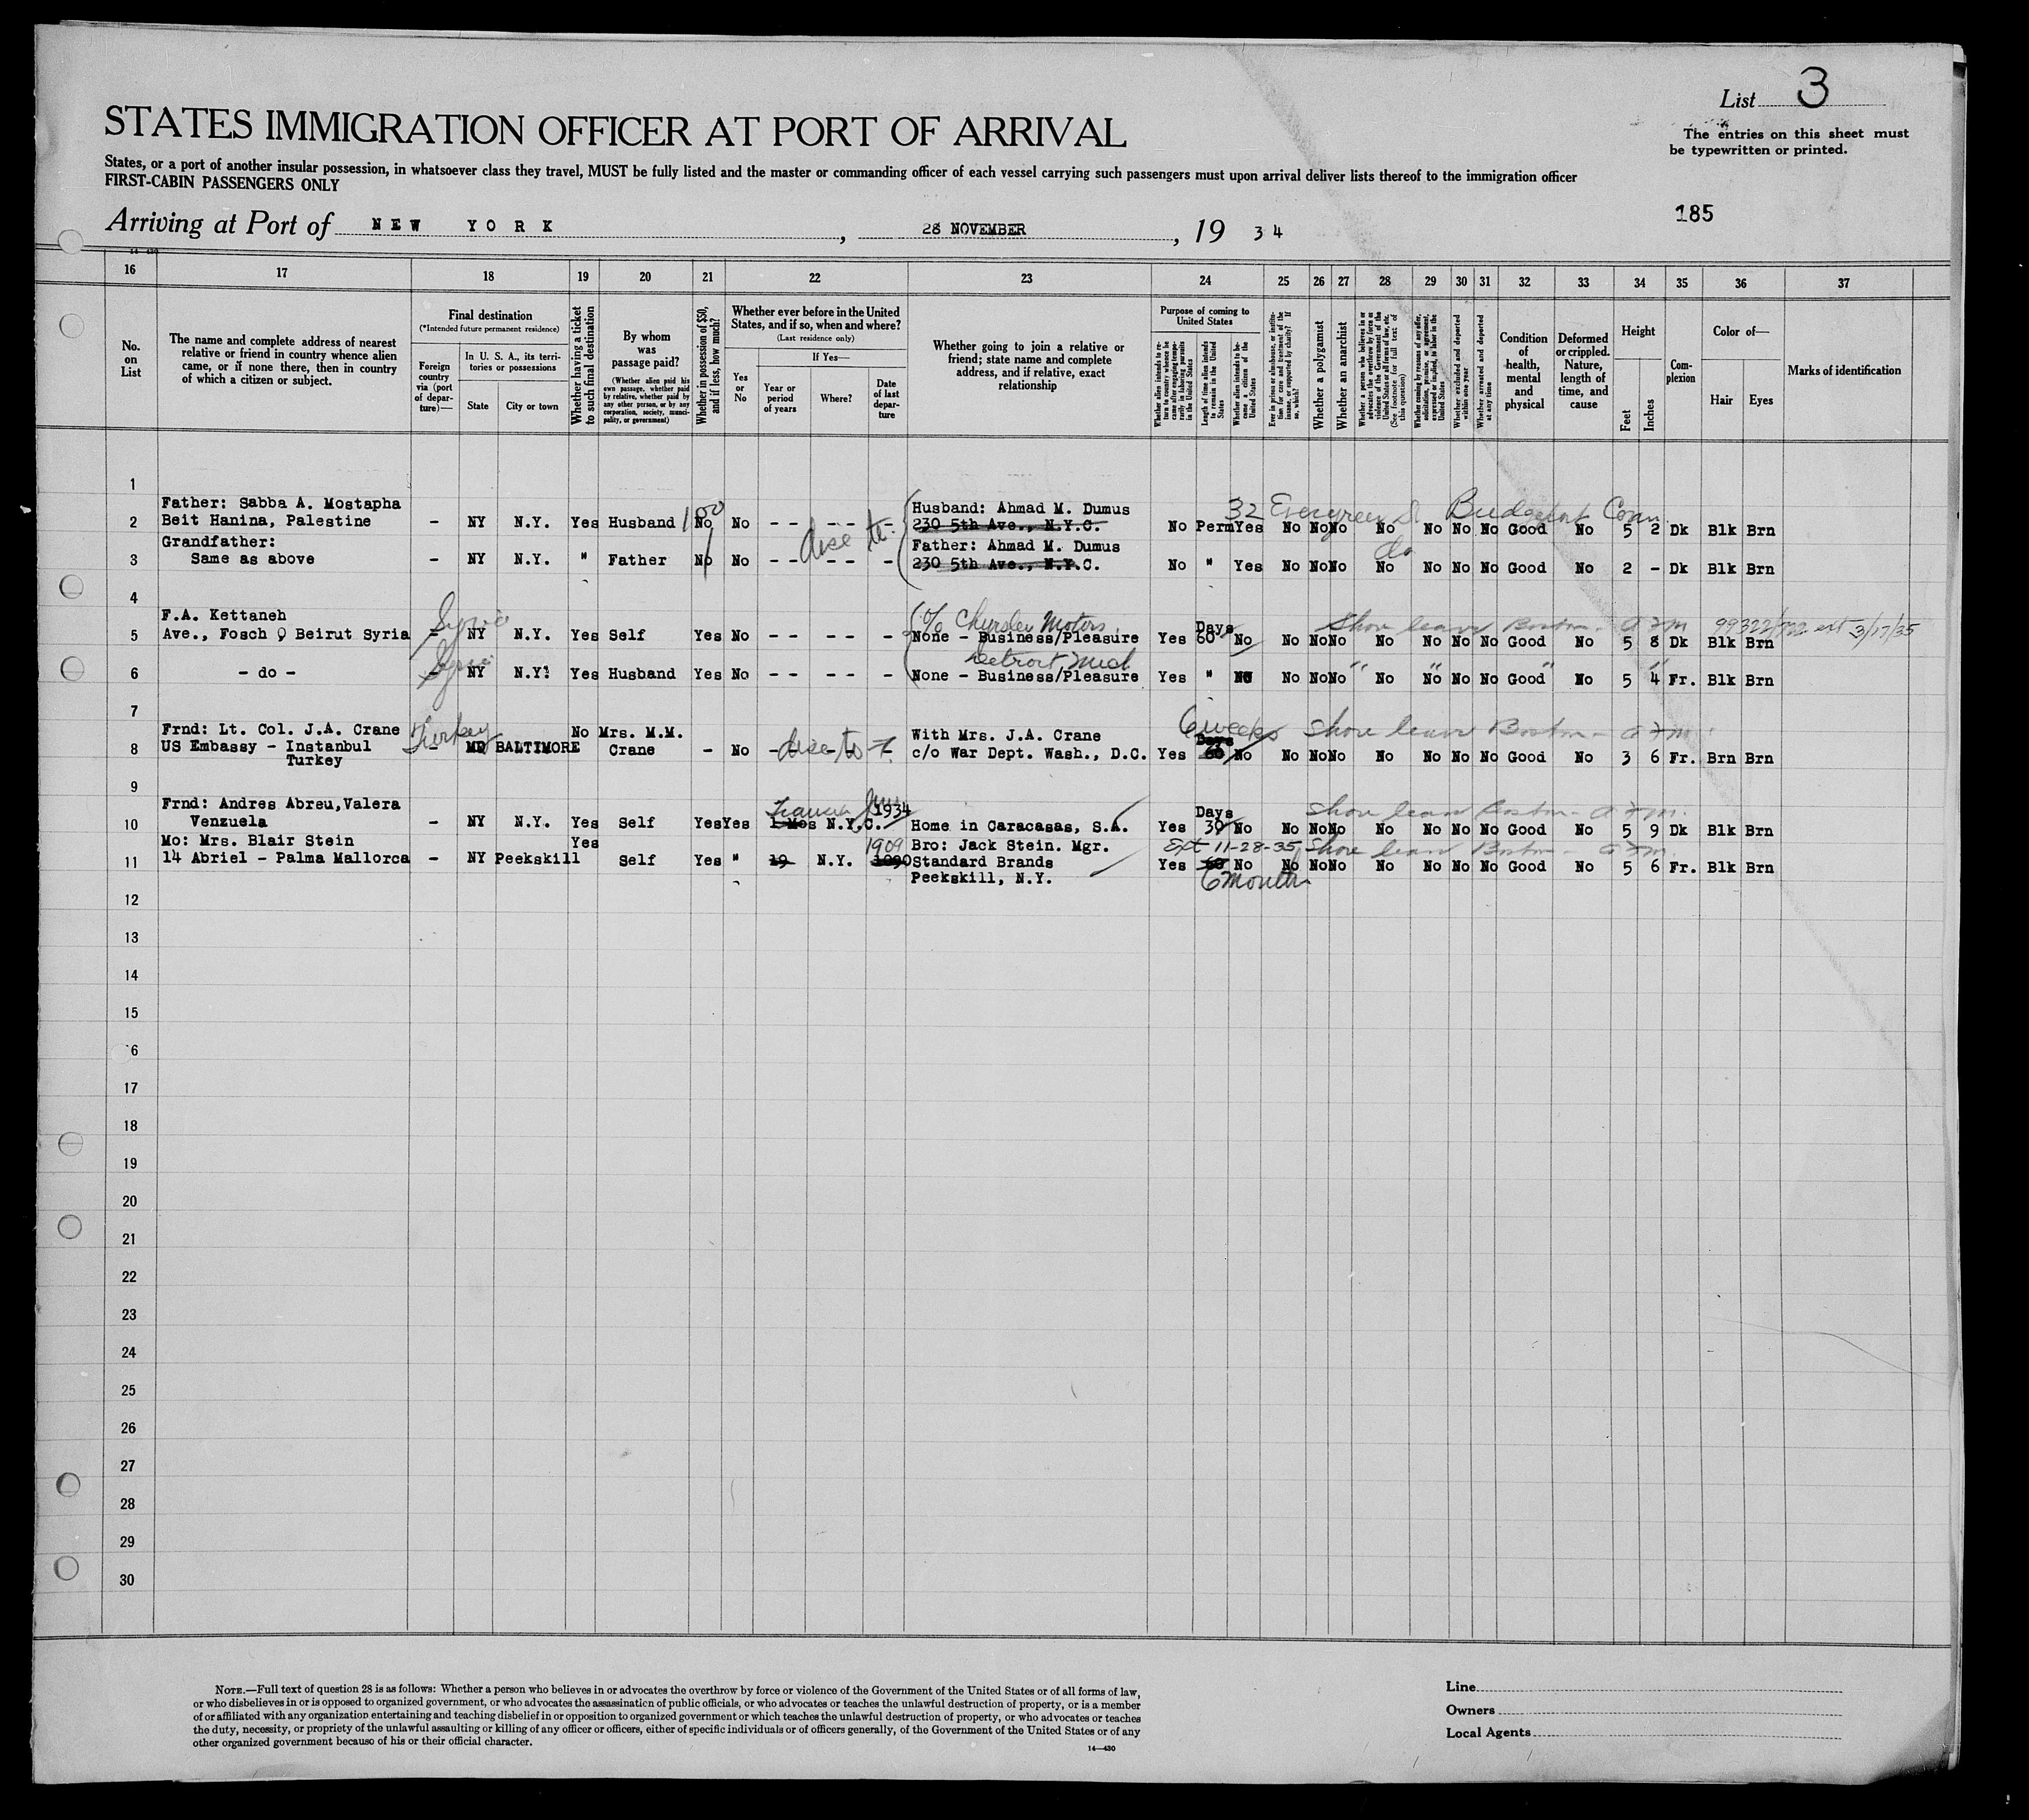 List 3
The entries on this sheet must
be typewritten or printed.
STATES IMMIGRATION OFFICER AT PORT OF ARRIVAL
States, or a port of another insular possession, in whatsoever class they travel, MUST be fully listed and the master or commanding officer of each vessel carrying such passengers must upon arrival deliver lists thereof to the immigration officer
FIRST-CABIN PASSENGERS ONLY
185
Arriving at Port of NEW YORK, 28 NOVEMBER, 19 34
16 17 18 19 20 21 22 23 24 25 26 27 28 29 30 31 32 33 34 35 36 37
No. on List
The name and complete address of nearest relative or friend in country whence alien came, or if none there, then in country of which a citizen or subject.
Final destination
(*Intended future permanent residence)
Foreign country via (port of departure)—
In U. S. A., its territories or possessions
State
City or town
Whether having a ticket to such final destination
By whom was passage paid?
(Whether alien paid his own passage, whether paid by relative, whether paid by any other person, or by any corporation, society, municipality, or government)
Whether in possession of $50, and if less, how much?
Whether ever before in the United States, and if so, when and where?
(Last residence only)
Yes or No
If Yes—
Year or period of years
Where?
Date of last departure
Whether going to join a relative or friend; state name and complete address, and if relative, exact relationship
Purpose of coming to United States
Length of time alien intends to remain in the United States
Whether alien intends to become a citizen of the United States
Whether a polygamist
Whether an anarchist
Whether excluded and deported within one year
Whether arrested and deported at any time
Condition of health, mental and physical
Deformed or crippled. Nature, length of time, and cause
Height
Feet
Inches
Complexion
Color of—
Hair
Eyes
Marks of identification
1
Father: Sabba A. Mostapha Husband: Ahmad M. Dumus 32 Evergreen
2 Beit Hanina, Palestine - NY N.Y. Yes Husband No No - - - - - 230 5th Ave., N.Y.C. No Perm Yes No No No No No No No Good No 5 2 Dk Blk Brn
Grandfather: Father: Ahmad M. Dumus do
3 Same as above - NY N.Y. " Father No No - - - - - 230 5th Ave., N.Y.C. No " Yes No No No No No No No Good No 2 - Dk Blk Brn
4
F.A. Kettaneh c/o Chrysler Motors Days Shore leave Boston
5 Ave., Fosch Beirut Syria Syria - NY N.Y. Yes Self Yes No - - - - - None - Business/Pleasure Yes 60 No No No No No No No No Good No 5 8 Dk Blk Brn 3/17/35
Detroit Mich
6 - do - Syria - NY N.Y. Yes Husband Yes No - - - - - None - Business/Pleasure Yes " No No No No No No No No Good No 5 4 Fr. Blk Brn
7
Frnd: Lt. Col. J.A. Crane Turkey No Mrs. M.M. With Mrs. J.A. Crane 6 weeks Days Shore leave Boston
8 US Embassy - Instanbul - MD BALTIMORE Crane - No - - - - - c/o War Dept. Wash., D.C. Yes 60 No No No No No No No No Good No 3 6 Fr. Brn Brn
Turkey
9
Frnd: Andres Abreu,Valera 1934 Days Shore leave Boston
10 Venzuela - NY N.Y. Yes Self Yes Yes 1 Mos N.Y.C. Home in Caracasas, S.A. Yes 30 No No No No No No No No Good No 5 9 Dk Blk Brn
Mo: Mrs. Blair Stein Yes 1909 Bro: Jack Stein. Mgr. Ext 11-28-35 Shore leave Boston
11 14 Abriel - Palma Mallorca - NY Peekskill Self Yes " 19 N.Y. Standard Brands Yes 60 No No No No No No No No Good No 5 6 Fr. Blk Brn
Peekskill, N.Y. 6 months
12
13
14
15
6
17
18
19
20
21
22
23
24
25
26
27
28
29
30
NOTE.—Full text of question 28 is as follows: Whether a person who believes in or advocates the overthrow by force or violence of the Government of the United States or of all forms of law,
or who disbelieves in or is opposed to organized government, or who advocates the assassination of public officials, or who advocates or teaches the unlawful destruction of property, or is a member
of or affiliated with any organization entertaining and teaching disbelief in or opposition to organized government or which teaches the unlawful destruction of property, or who advocates or teaches
the duty, necessity, or propriety of the unlawful assaulting or killing of any officer or officers, either of specific individuals or of officers generally, of the Government of the United States or of any
other organized government because of his or their official character.
14—430
Line
Owners
Local Agents